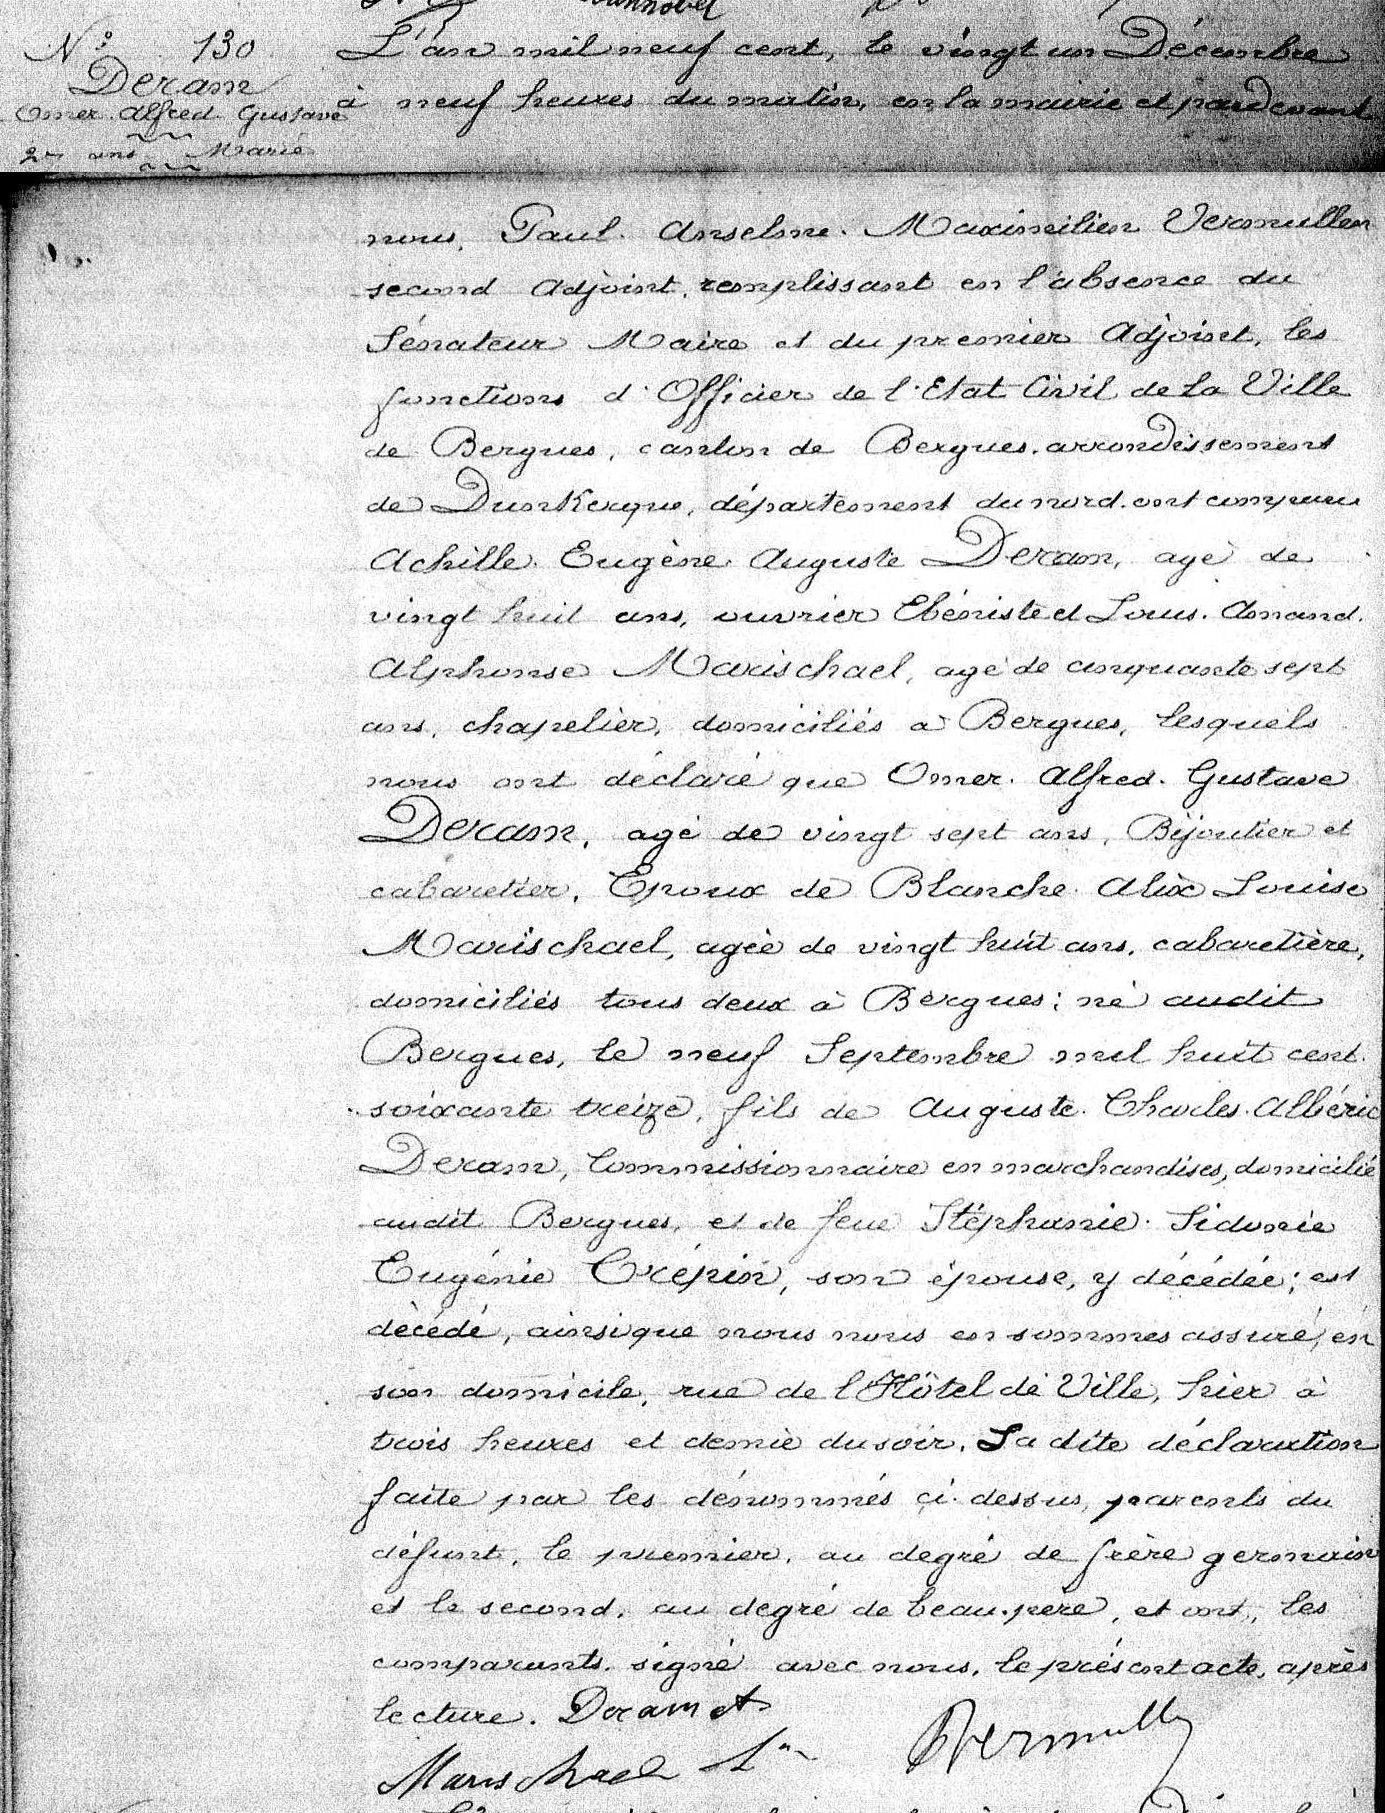 N° 130
Deram
Omer. Alfred. Gustave
27 ans Marié
L'an mil neuf cent, le vingt un Décembre
à neuf heures du matin, en la mairie et pardevant
nous, Paul. Anselme. Maximilien Vermullen
second Adjoint, remplissant en l'absence du
Sénateur Maire et du premier Adjoint, les
fonctions d'Officier de l'Etat Civil de la Ville
de Bergues, canton de Bergues, arrondissement
de Dunkerque, département du nord. ont comparu
Achille. Eugène. Auguste Deram, agé de
vingt huit ans, ouvrier Ebéniste et Louis. Amand.
Alphonse Marischael, agé de cinquante sept
ans, chapelier, domiciliés à Bergues, lesquels
nous ont déclaré que Omer. Alfred. Gustave
Deram, agé de vingt sept ans, Bijoutier et
cabaretier, Epoux de Blanche. Alix Louise
Marischael, agée de vingt huit ans, cabaretière,
domiciliés tous deux à Bergues; né audit
Bergues, le neuf Septembre mil huit cent.
soixante treize, fils de Auguste. Charles. Albéric
Deram, Commissionnaire en marchandises, domicilié
audit Bergues, et de feue Stéphanie. Sidonie
Eugénie Crépin, son épouse, y décédée; est
décédé, ainsi que nous nous en sommes assuré, en
son domicile, rue de l'Hôtel de Ville, hier à
trois heures et demie du soir. La dite déclaration
faite par les dénommés ci-dessus, parents du
défunt, le premier, au degré de frère germain
et le second, au degré de beau-père, et ont, les
comparants, signé avec nous, le présent acte, après
lecture. Deram A
Marischael L PVermullen